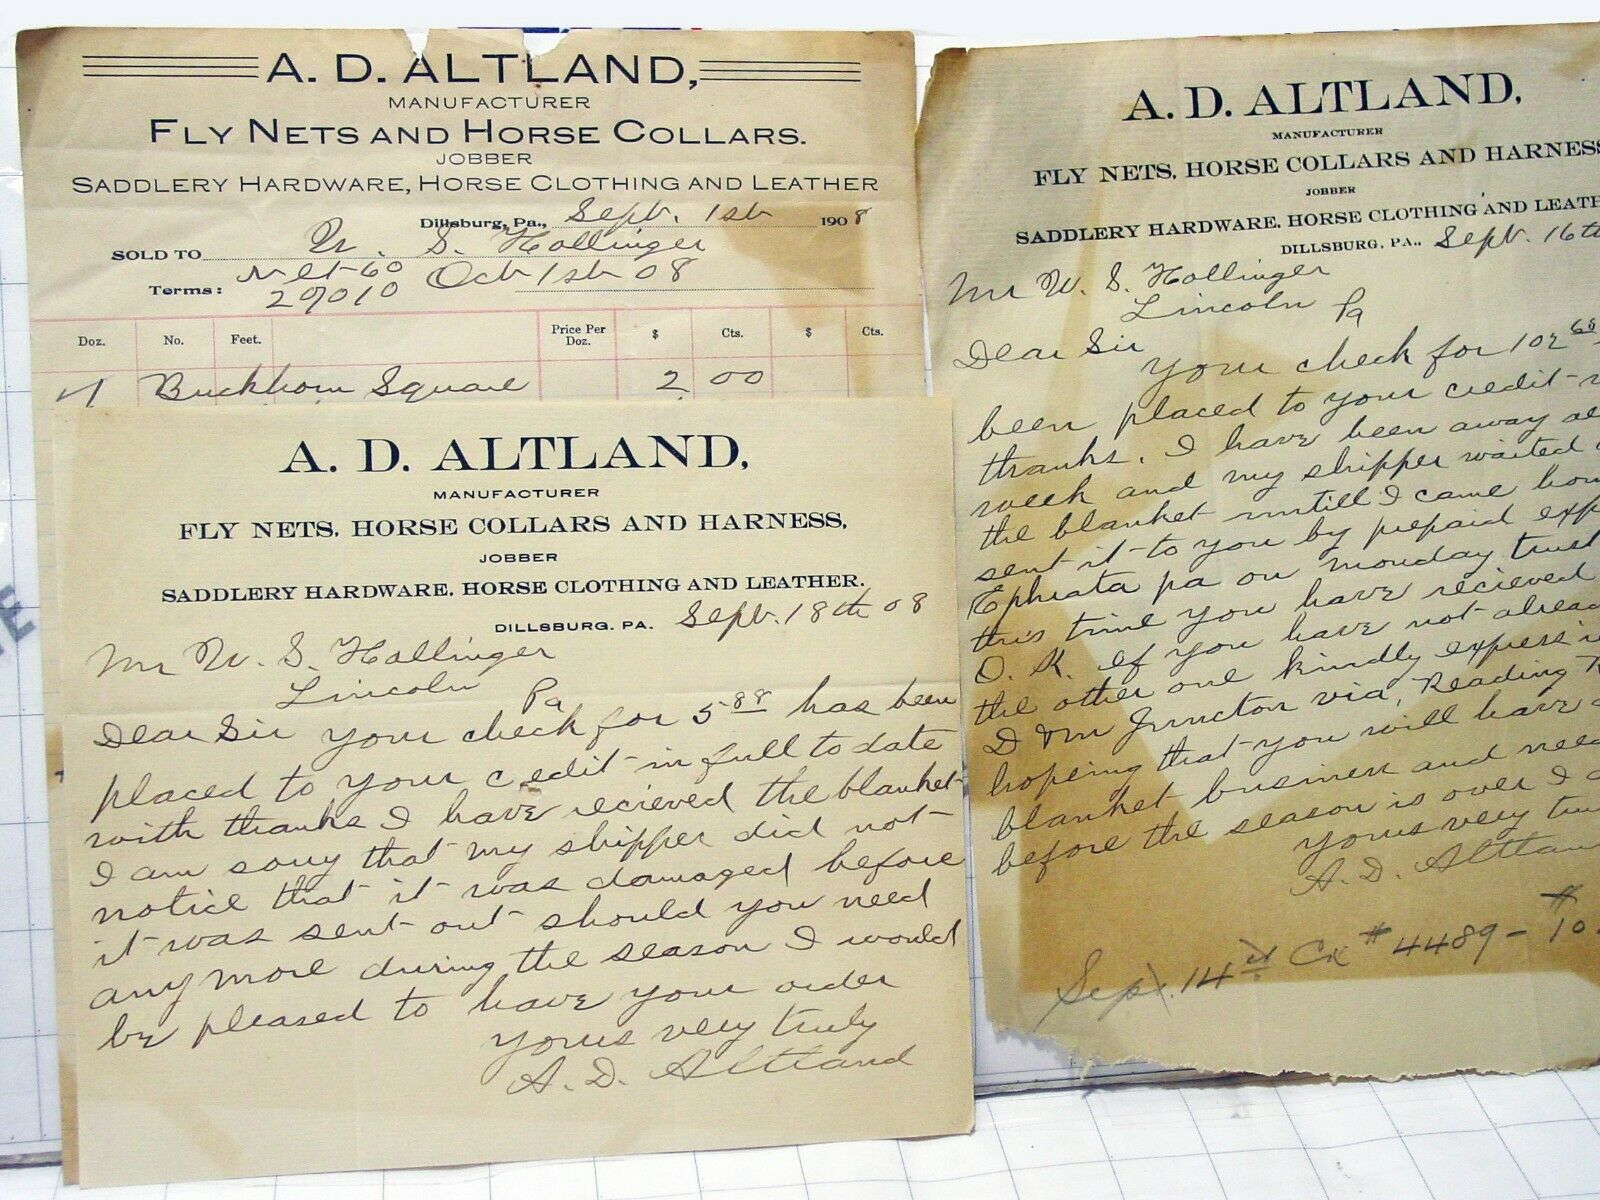 A. D. ALTLAND,
MANUFACTURER
FLY NETS AND HORSE COLLARS.
JOBBER
SADDLERY HARDWARE, HORSE CLOTHING AND LEATHER
Dillsburg, Pa., Sept. 1st 1908
SOLD TO W. S. Hollinger
Terms: Net 60 Oct 1st 08
Doz. No. Feet. Price Per Doz. $ Cts. $ Cts.
Buckhorn Square 2 00
A. D. ALTLAND,
MANUFACTURER
FLY NETS, HORSE COLLARS AND HARNESS,
JOBBER
SADDLERY HARDWARE, HORSE CLOTHING AND LEATHER.
DILLSBURG, PA. Sept. 18th 08
Mr W. S. Hollinger
Lincoln Pa
Dear Sir your check for 5 88 has been
placed to your credit in full to date
with thanks I have recieved the blanket
I am sorry that my shipper did not
notice that it was damaged before
it was sent out should you need
any more during the season I would
be pleased to have your order
yours very truly
A. D. Altland
A. D. ALTLAND,
MANUFACTURER
FLY NETS, HORSE COLLARS AND HARNESS
JOBBER
SADDLERY HARDWARE, HORSE CLOTHING AND LEATH
DILLSBURG, PA., Sept. 16th
Mr W. S. Hollinger
Lincoln Pa
Dear Sir
your check for 102 68
been placed to your credit
thanks. I have been away
week and my shipper waited
the blanket untill I came
sent it to you by prepaid exp
Ephrata pa on monday trust
this time you have recieved
O. K. if you have not alrea
the other one kindly express
D &m Junction via, Reading R
hopeing that you will have
blanket business and need
before the season is over I
yours very tru
A. D. Altlan
Sep. 14 Ck # 4489 - $10